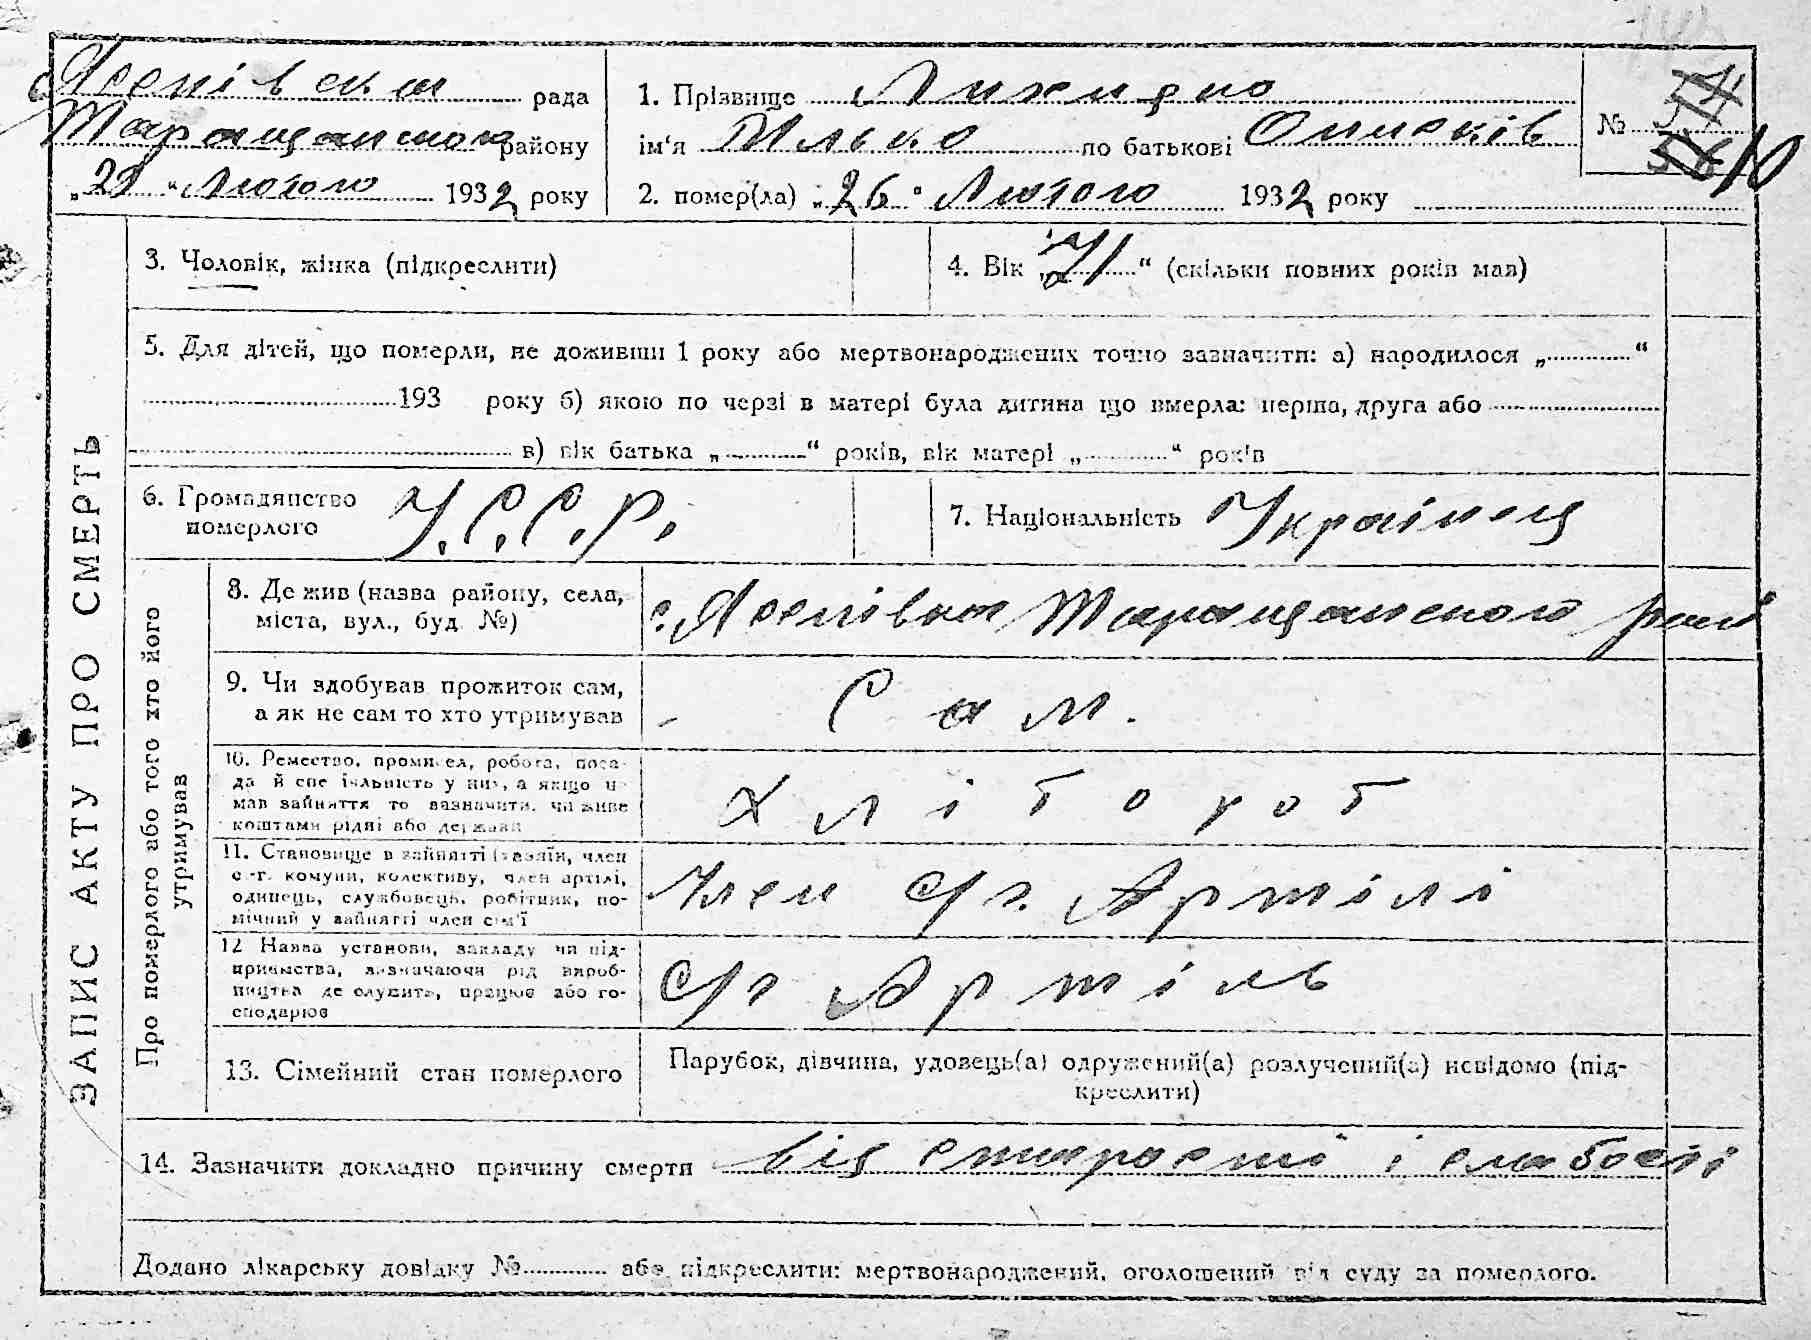 рада
Таращанського району
"29" Лютого 1932 року
1. Прізвище
ім'я Ілько по батькові
2. помер(ла) "26" Лютого 1932 року
№
ЗАПИС АКТУ ПРО СМЕРТЬ
3. Чоловік, жінка (підкреслити)
4. Вік "71" (скільки повних років мав)
5. Для дітей, що померли, не доживши 1 року або мертвонароджених точно зазначити: а) народилося „ “
193 року б) якою по черзі в матері була дитина що вмерла: перша, друга або
в) вік батька „ “ років, вік матері „ “ років
6. Громадянство
померлого У.С.С.Р.
7. Національність Українец
Про померлого або того хто його
утримував
8. Де жив (назва району, села,
міста, вул., буд №)
Таращанського
9. Чи здобував прожиток сам,
а як не сам то хто утримував
Сам.
10. Ремество, промисел, робота, поса-
да й спеціальність у них, а якщо не
мав зайняття то зазначити, чи живе
коштами рідні або держави
хліторот
11. Становище в зайнятті (хазяїн, член
с.-г. комуни, колективу, член артілі,
одинець, службовець, робітник, по-
мічний у зайнятті член сім'ї
Член с/г. Артілі
12 Назва установи, закладу чи під-
приємства, зазначаючи рід вироб-
ництва де служить, працює або го-
сподарює
С/г Артіль
13. Сімейний стан померлого
Парубок, дівчина, удовець(а) одружений(а) розлучений(а) невідомо (під-
креслити)
14. Зазначити докладно причину смерти від старості і слабості
Додано лікарську довідку № або підкреслити: мертвонароджений, оголошений від суду за померлого.